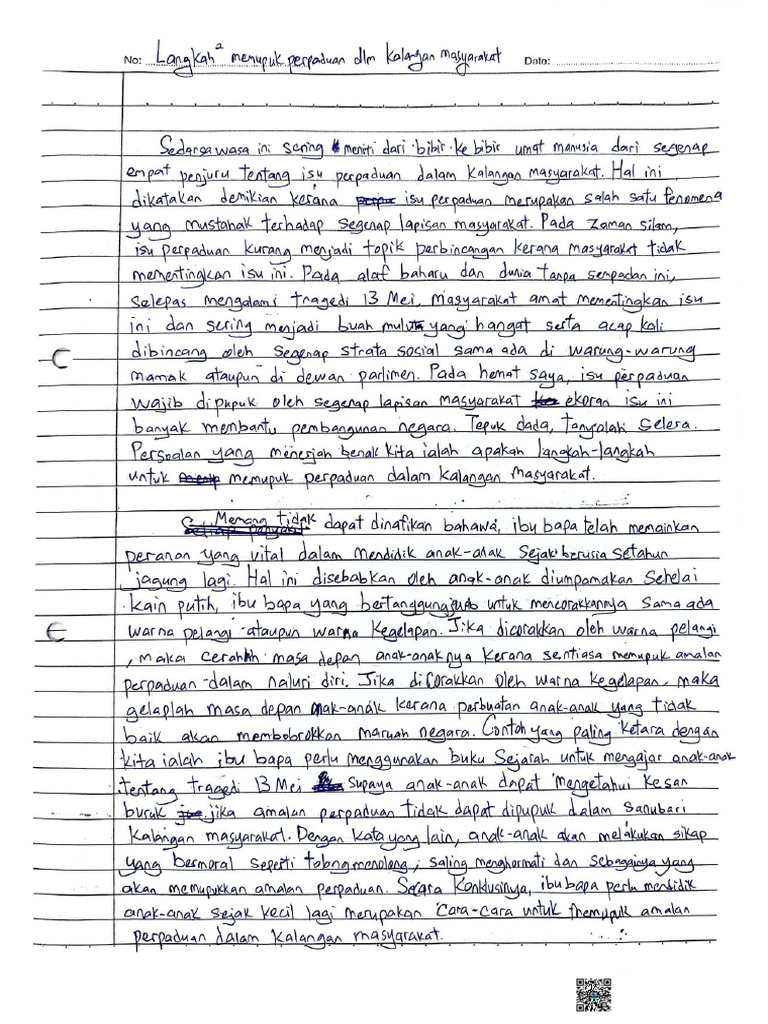 No: Langkah² memupuk perpaduan dlm kalangan masyarakat Date:
Sedarsawasa ini sering meniti dari bibir ke bibir umat manusia dari segenap
empat penjuru tentang isu perpaduan dalam kalangan masyarakat. Hal ini
dikatakan demikian kerana isu perpaduan merupakan salah satu fenomena
yang mustahak terhadap segenap lapisan masyarakat. Pada zaman silam,
isu perpaduan kurang menjadi topik perbincangan kerana masyarakat tidak
mementingkan isu ini. Pada alaf baharu dan dunia tanpa sempadan ini,
selepas mengalami tragedi 13 Mei, masyarakat amat mementingkan isu
ini dan sering menjadi buah mulut yang hangat serta acap kali
dibincang oleh segenap strata sosial sama ada di warung-warung
mamak ataupun di dewan parlimen. Pada hemat saya, isu perpaduan
wajib dipupuk oleh segenap lapisan masyarakat ekoran isu ini
banyak membantu pembangunan negara. Tepuk dada, tanyalah selera.
Persoalan yang menerjah benak kita ialah apakah langkah-langkah
untuk memupuk perpaduan dalam kalangan masyarakat.
Memang tidak dapat dinafikan bahawa, ibu bapa telah memainkan
peranan yang vital dalam mendidik anak-anak sejak berusia setahun
jagung lagi. Hal ini disebabkan oleh anak-anak diumpamakan sehelai
kain putih, ibu bapa yang bertanggungjawab untuk mencorakkannya sama ada
warna pelangi ataupun warna kegelapan. Jika dicorakkan oleh warna pelangi
, maka cerahlah masa depan anak-anaknya kerana sentiasa memupuk amalan
perpaduan dalam naluri diri. Jika dicorakkan oleh warna kegelapan, maka
gelaplah masa depan anak-anak kerana perbuatan anak-anak yang tidak
baik akan membobrokkan maruah negara. Contoh yang paling ketara dengan
kita ialah ibu bapa perlu menggunakan buku Sejarah untuk mengajar anak-anak
tentang tragedi 13 Mei supaya anak-anak dapat mengetahui kesan
buruk jika amalan perpaduan tidak dapat dipupuk dalam sanubari
kalangan masyarakat. Dengan kata yang lain, anak-anak akan melakukan sikap
yang bermoral seperti tolong menolong, saling menghormati dan sebagainya yang
akan memupukkan amalan perpaduan. Secara konklusinya, ibu bapa perlu mendidik
anak-anak sejak kecil lagi merupakan cara-cara untuk memupuk amalan
perpaduan dalam kalangan masyarakat.